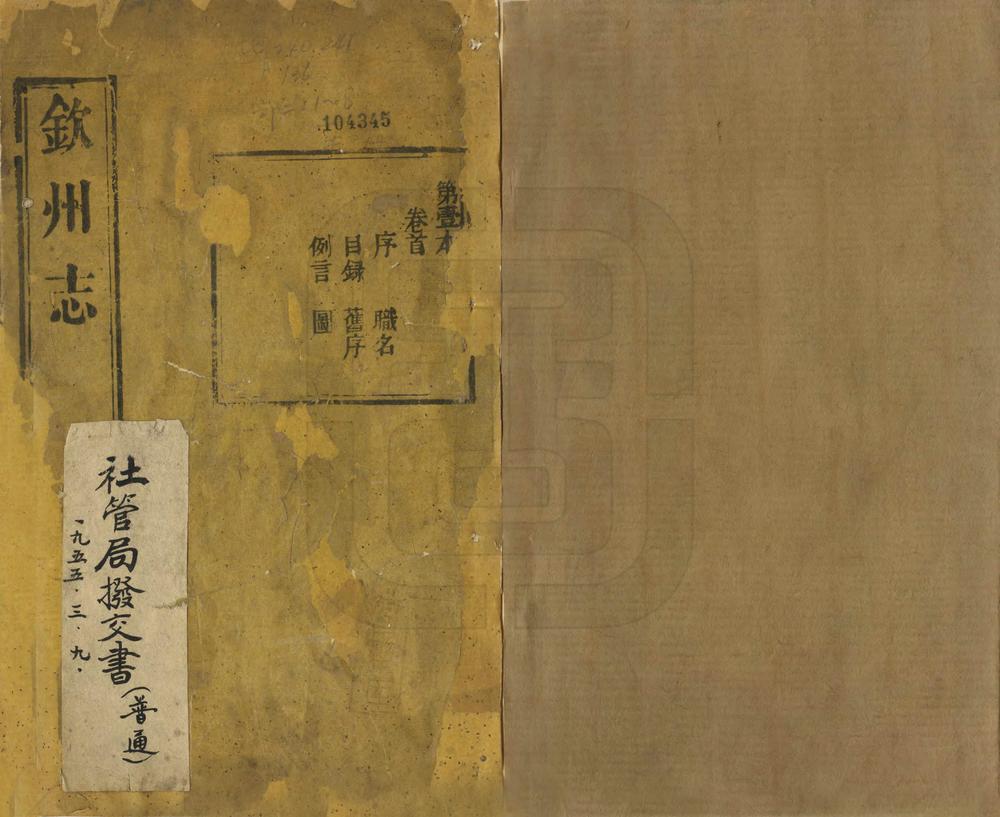 欽州志
104345
第壹本
卷首
序 職名
目録 舊序
例言 圖
社管局撥交書(普通)
一九五五.三.九.